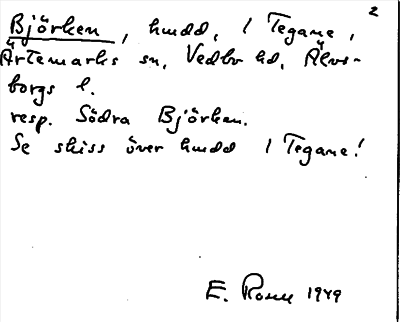 2
Björken, hmdd, i Tegane,
Ärtemarks sn, Vedbo hd, Älvs-
borgs l.
resp. Södra Björken.
Se skiss över hmdd i Tegane!
E. Rosell 1949